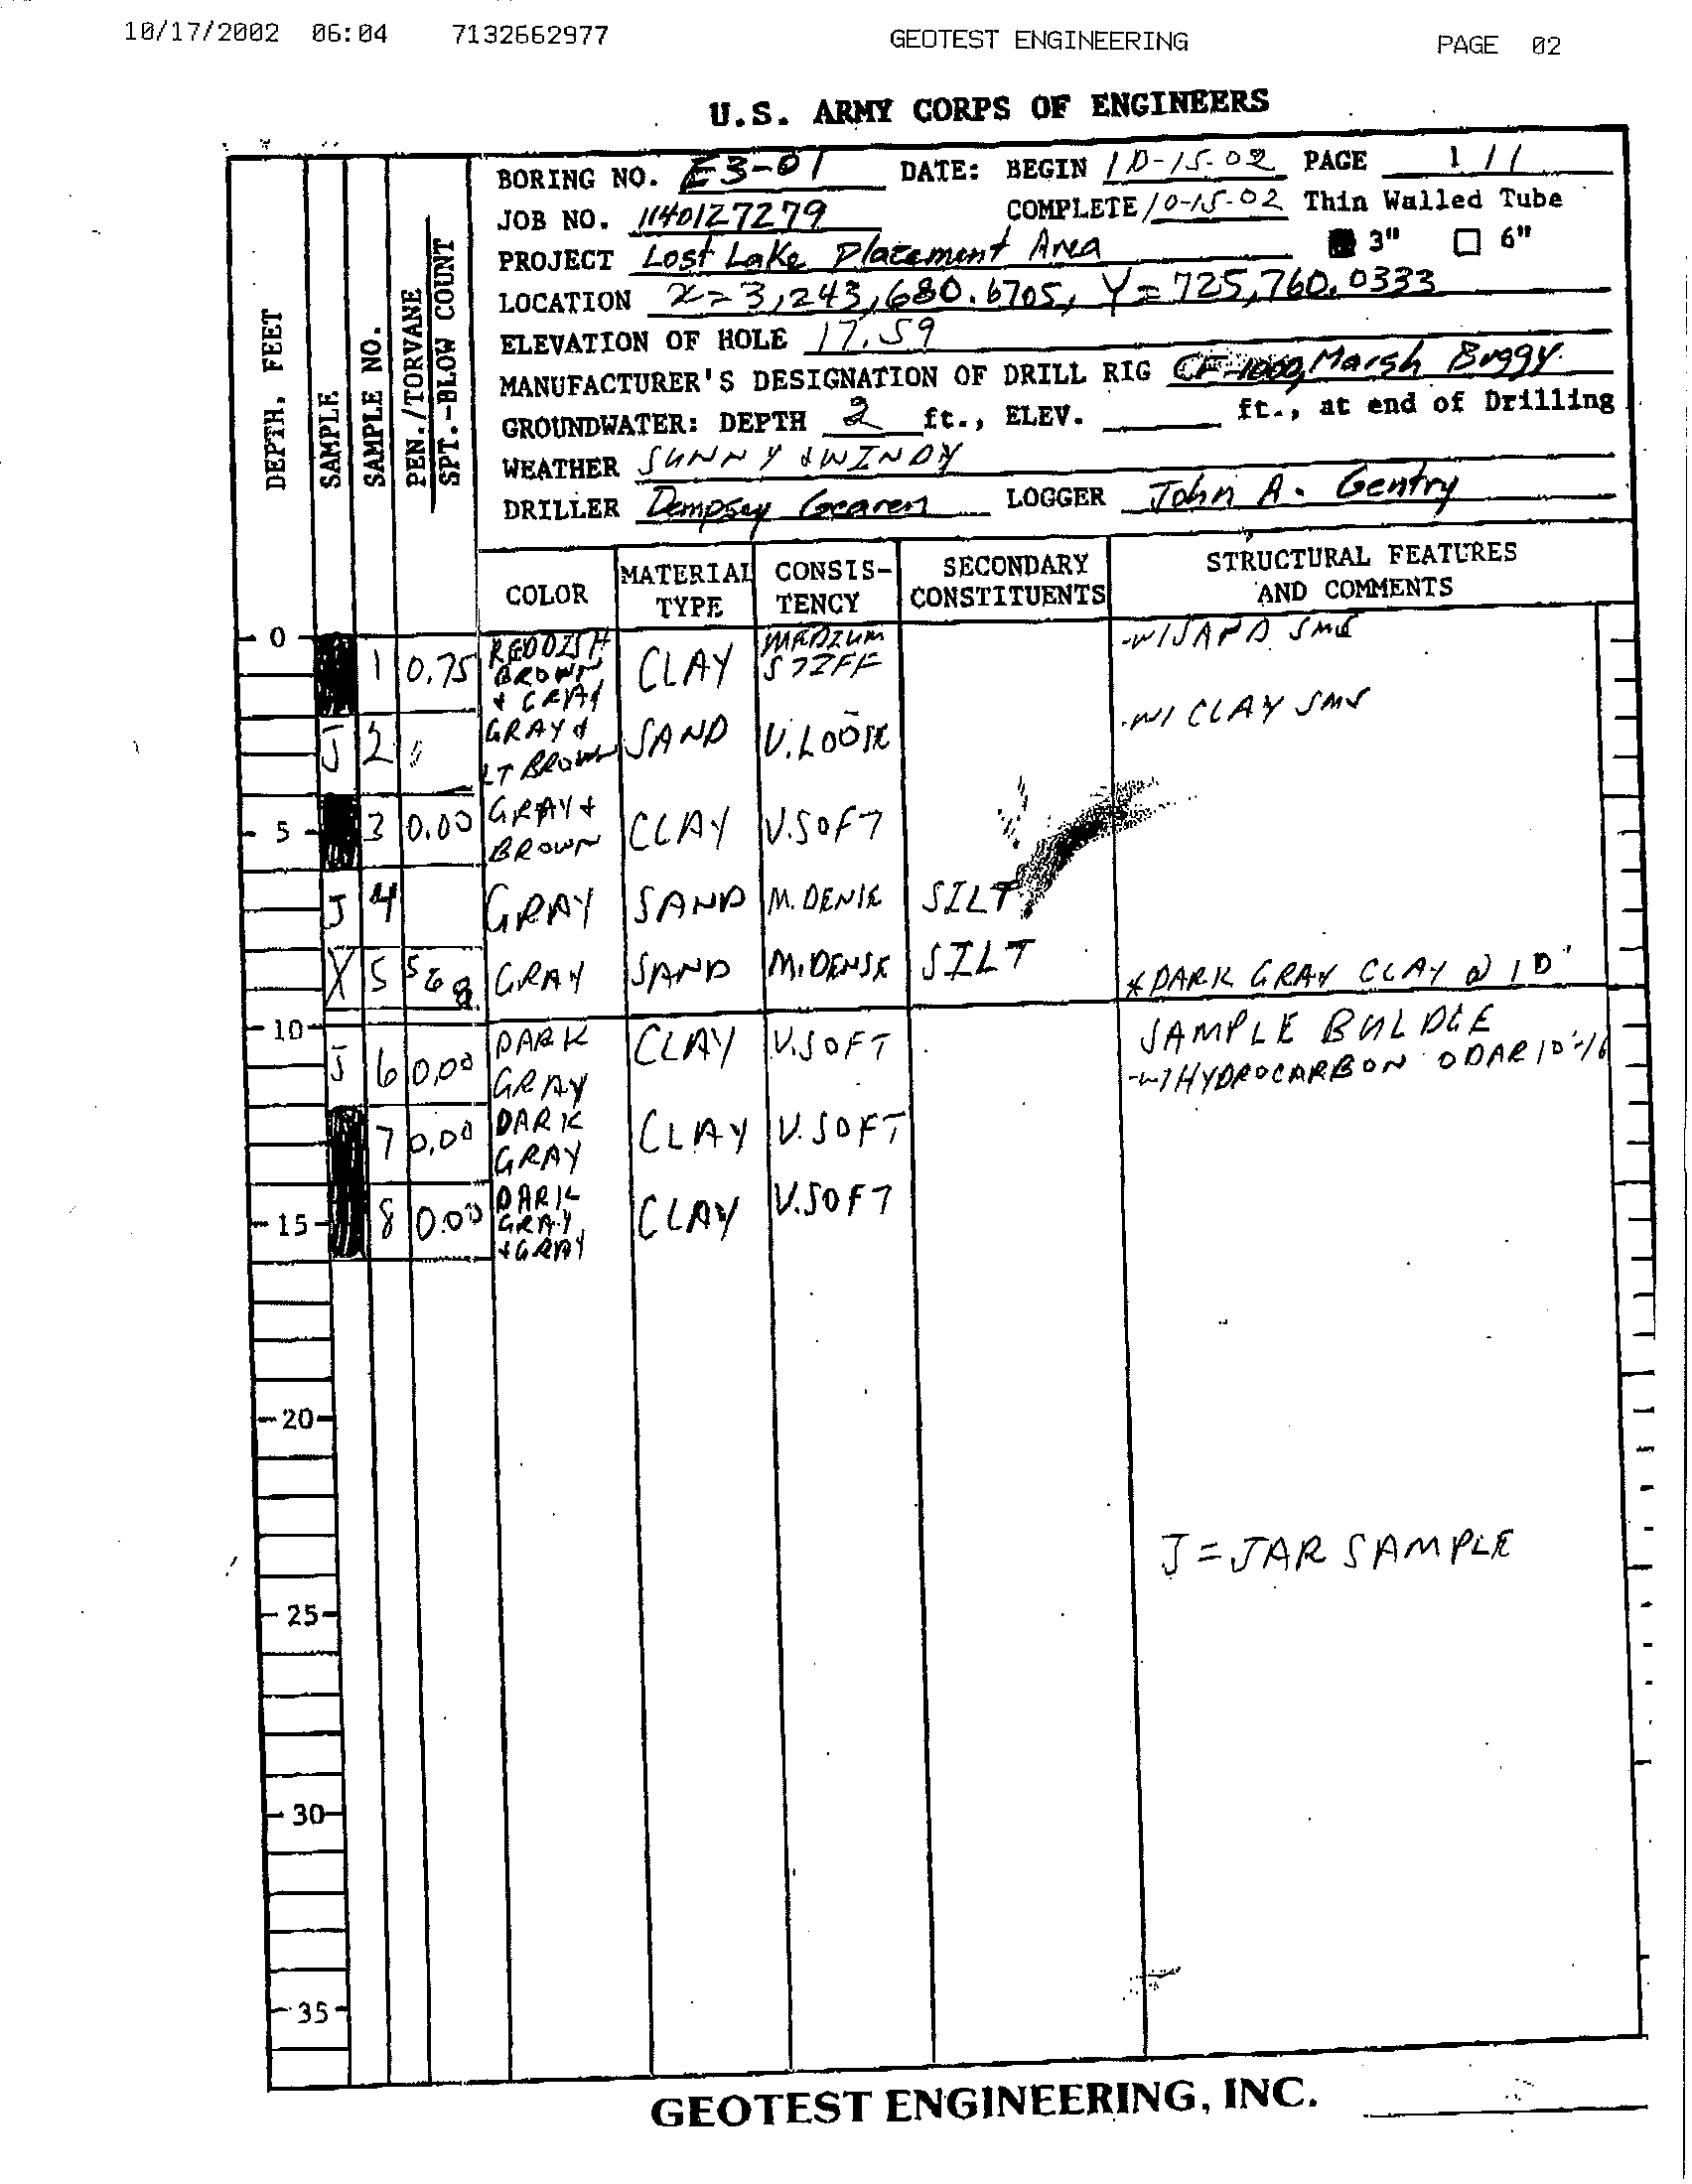 10/17/2002 06:04 7132662977 GEOTEST ENGINEERING PAGE 02
U.S. ARMY CORPS OF ENGINEERS
BORING NO. E3-01 DATE: BEGIN 10-15-02 PAGE 1 / 1
JOB NO. 1140127279 COMPLETE 10-15-02 Thin Walled Tube
PROJECT Lost Lake Placement Area 3" 6"
LOCATION X=3,243,680.6705, Y=725,760.0333
ELEVATION OF HOLE 17.59
MANUFACTURER'S DESIGNATION OF DRILL RIG Marsh Buggy
GROUNDWATER: DEPTH 2 ft., ELEV. ft., at end of Drilling
WEATHER SUNNY & WINDY
DRILLER Dempsey Gearen LOGGER John A. Gentry
DEPTH, FEET
SAMPLE
SAMPLE NO.
PEN./TORVANE
SPT.-BLOW COUNT
COLOR MATERIAL TYPE CONSIS-TENCY SECONDARY CONSTITUENTS STRUCTURAL FEATURES AND COMMENTS
0 1 0.75 REDDISH BROWN & GRAY CLAY MEDIUM STIFF -W/SAND SMS
J 2 GRAY & LT BROWN SAND V.LOOSE -W/ CLAY SMS
5 3 0.00 GRAY & BROWN CLAY V.SOFT
J 4 GRAY SAND M.DENSE SILT
X 5 5 6 8 GRAY SAND M.DENSE SILT *DARK GRAY CLAY @ 10'
10 J 6 0.00 DARK GRAY CLAY V.SOFT SAMPLE BULDGE
-W/HYDROCARBON ODAR 10'-16
7 0.00 DARK GRAY CLAY V.SOFT
15 8 0.00 DARK GRAY & GRAY CLAY V.SOFT
20
J = JAR SAMPLE
25
30
35
GEOTEST ENGINEERING, INC.